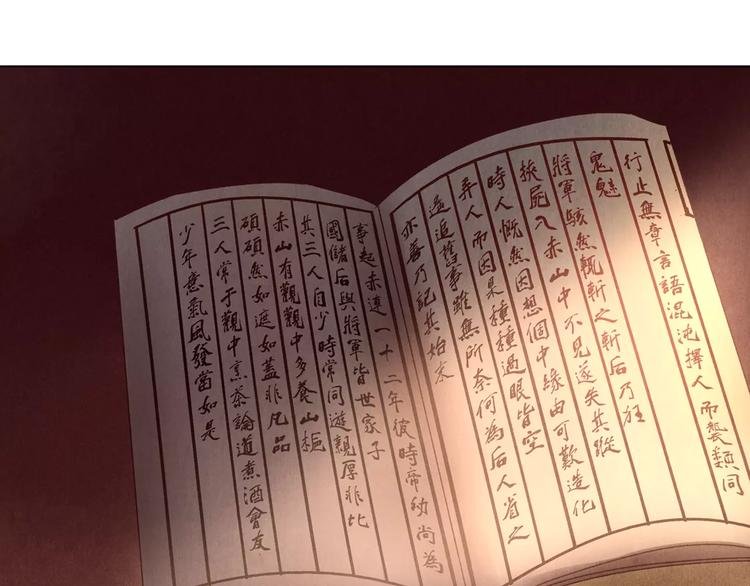 行止無章言語混沌擇人而襲類同
鬼魅
將軍駭然輒斬之斬后乃狂
挾屍入赤山中不見遂失其蹤
時人慨然因想個中緣由可歎造化
弄人而因是種種過眼皆空
遙追舊事雖無所奈何為后人省之
亦善乃記其始末
事起赤連一十二年彼時帝幼尚為
國儲后與將軍皆世家子
其三人自少時常同遊親厚非比
赤山有觀觀中多養山梔
碩碩然如遮如蓋非凡品
三人常于觀中烹茶論道煮酒會友
少年意氣風發當如是